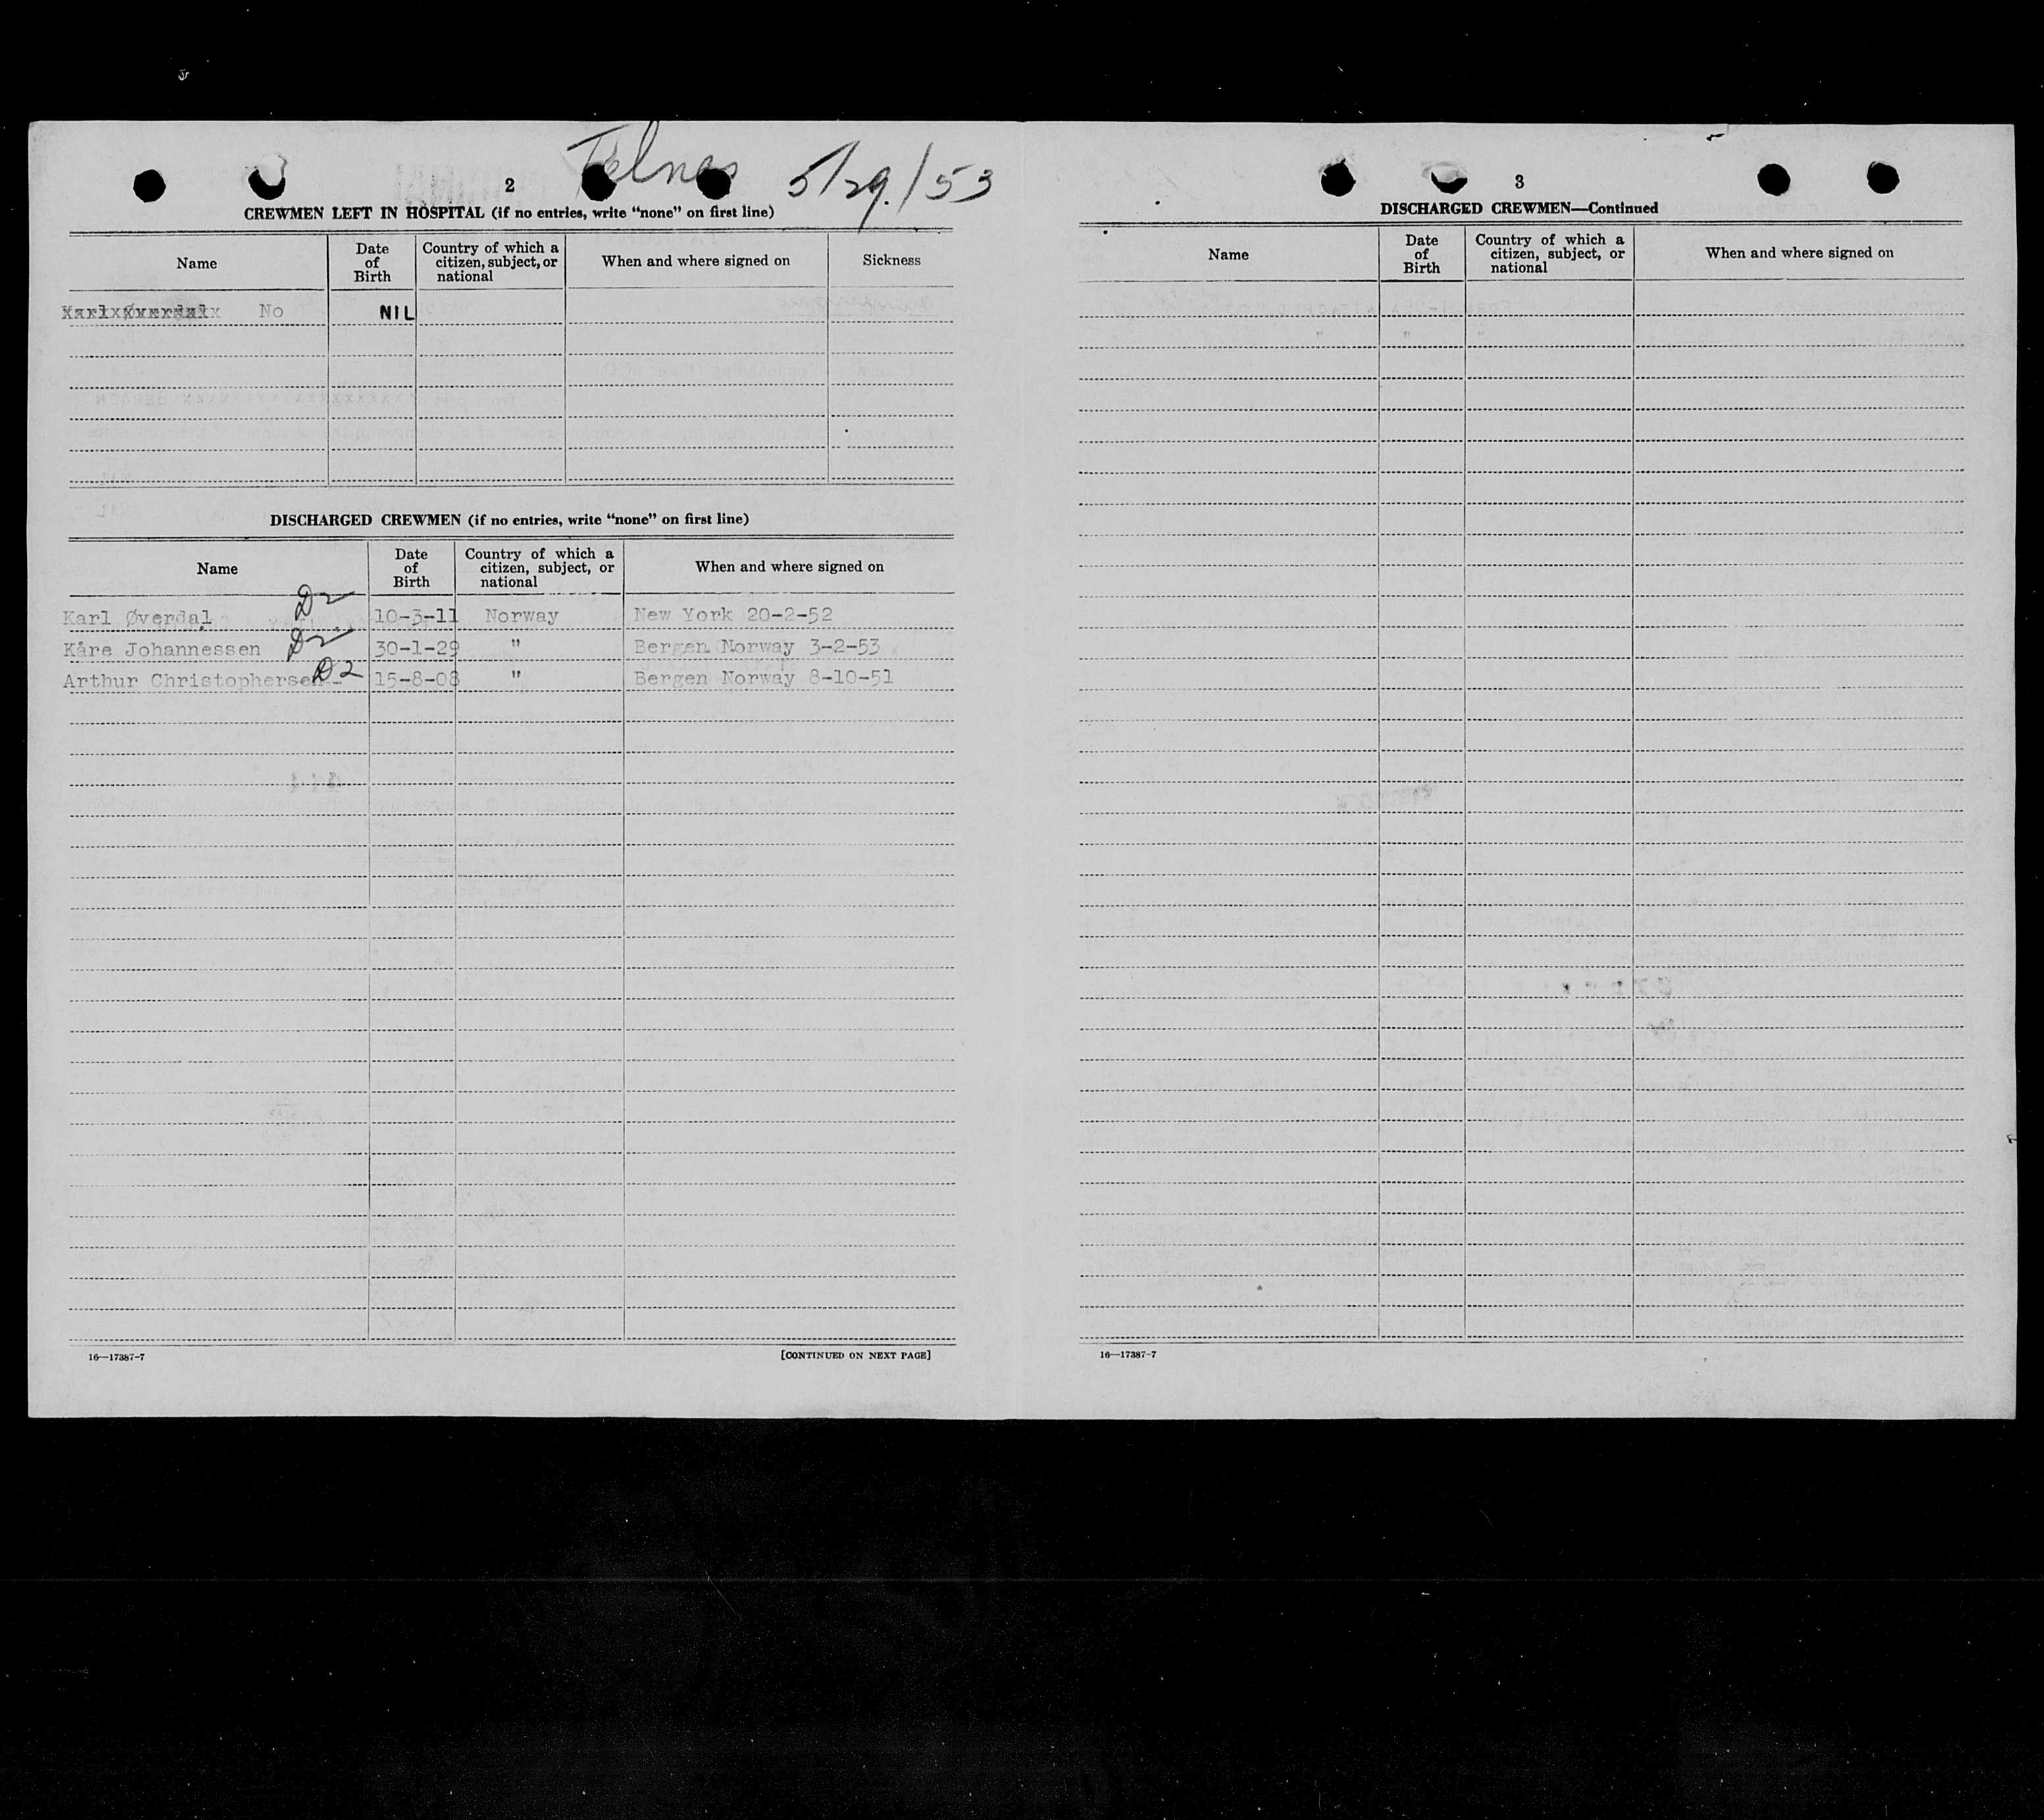 Telnes 5/29/53
2
CREWMEN LEFT IN HOSPITAL (if no entries, write "none" on first line)
Name
Date of Birth
Country of which a citizen, subject, or national
When and where signed on
Sickness
Karl Øverdal No NIL
DISCHARGED CREWMEN (if no entries, write "none" on first line)
Name
Date of Birth
Country of which a citizen, subject, or national
When and where signed on
Karl Øverdal D2 10-3-11 Norway New York 20-2-52
Kåre Johannessen D2 30-1-29 " Bergen Norway 3-2-53
Arthur Christophersen D2 15-8-08 " Bergen Norway 8-10-51
16—17387-7 [CONTINUED ON NEXT PAGE]
3
DISCHARGED CREWMEN—Continued
Name
Date of Birth
Country of which a citizen, subject, or national
When and where signed on
16—17387-7